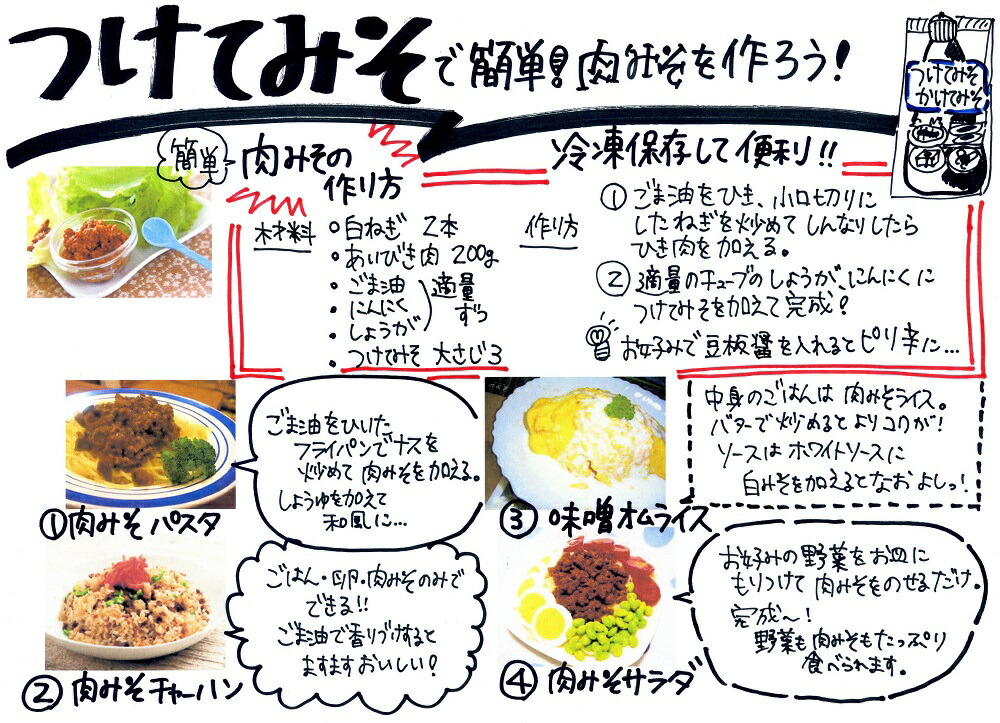 つけてみそで簡単!肉みそを作ろう!
つけてみそ
かけてみそ
簡単
肉みその
作り方
冷凍保存して便利!!
材料
○白ねぎ 2本
○あいびき肉 200g
・ごま油
・にんにく
・しょうが
適量
ずつ
・つけてみそ 大さじ3
作り方
① ごま油をひき、小口切りに
したねぎを炒めてしんなりしたら
ひき肉を加える。
② 適量のチューブのしょうが、にんにくに
つけてみそを加えて完成!
お好みで豆板醤を入れるとピリ辛に…
ごま油をひいた
フライパンでナスを
炒めて肉みそを加える。
しょうゆを加えて
和風に…
①肉みそパスタ
ごはん・卵・肉みそのみで
できる!!
ごま油で香りづけすると
ますますおいしい!
②肉みそチャーハン
中身のごはんは肉みそライス。
バターで炒めるとよりコクが!
ソースはホワイトソースに
白みそを加えるとなおよしっ!
③味噌オムライス
お好みの野菜をお皿に
もりつけて肉みそをのせるだけ。
完成〜!
野菜も肉みそもたっぷり
食べられます。
④肉みそサラダ